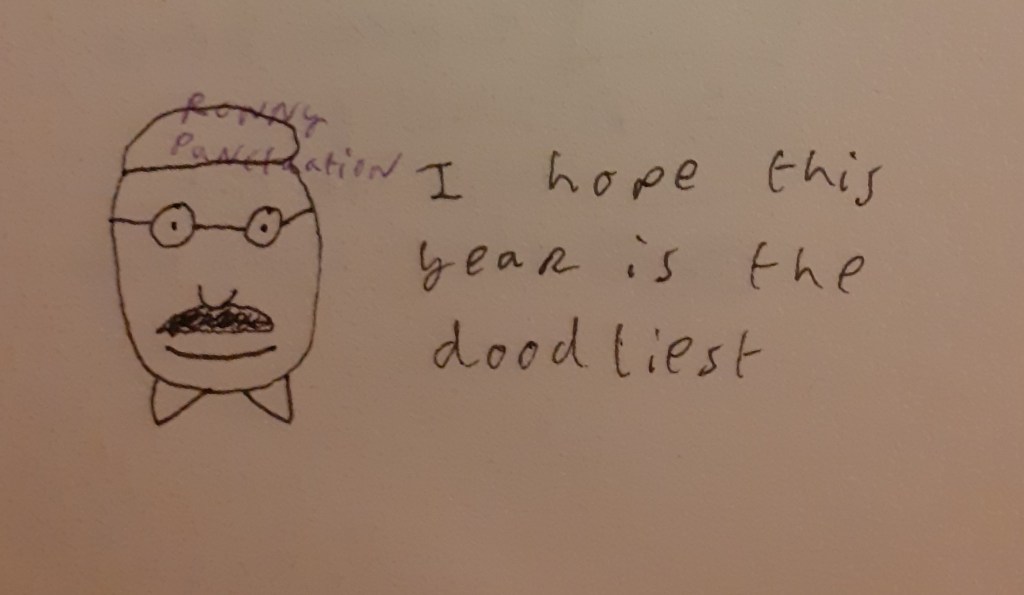 RONNY
PANCTUATION
I hope this
year is the
doodliest